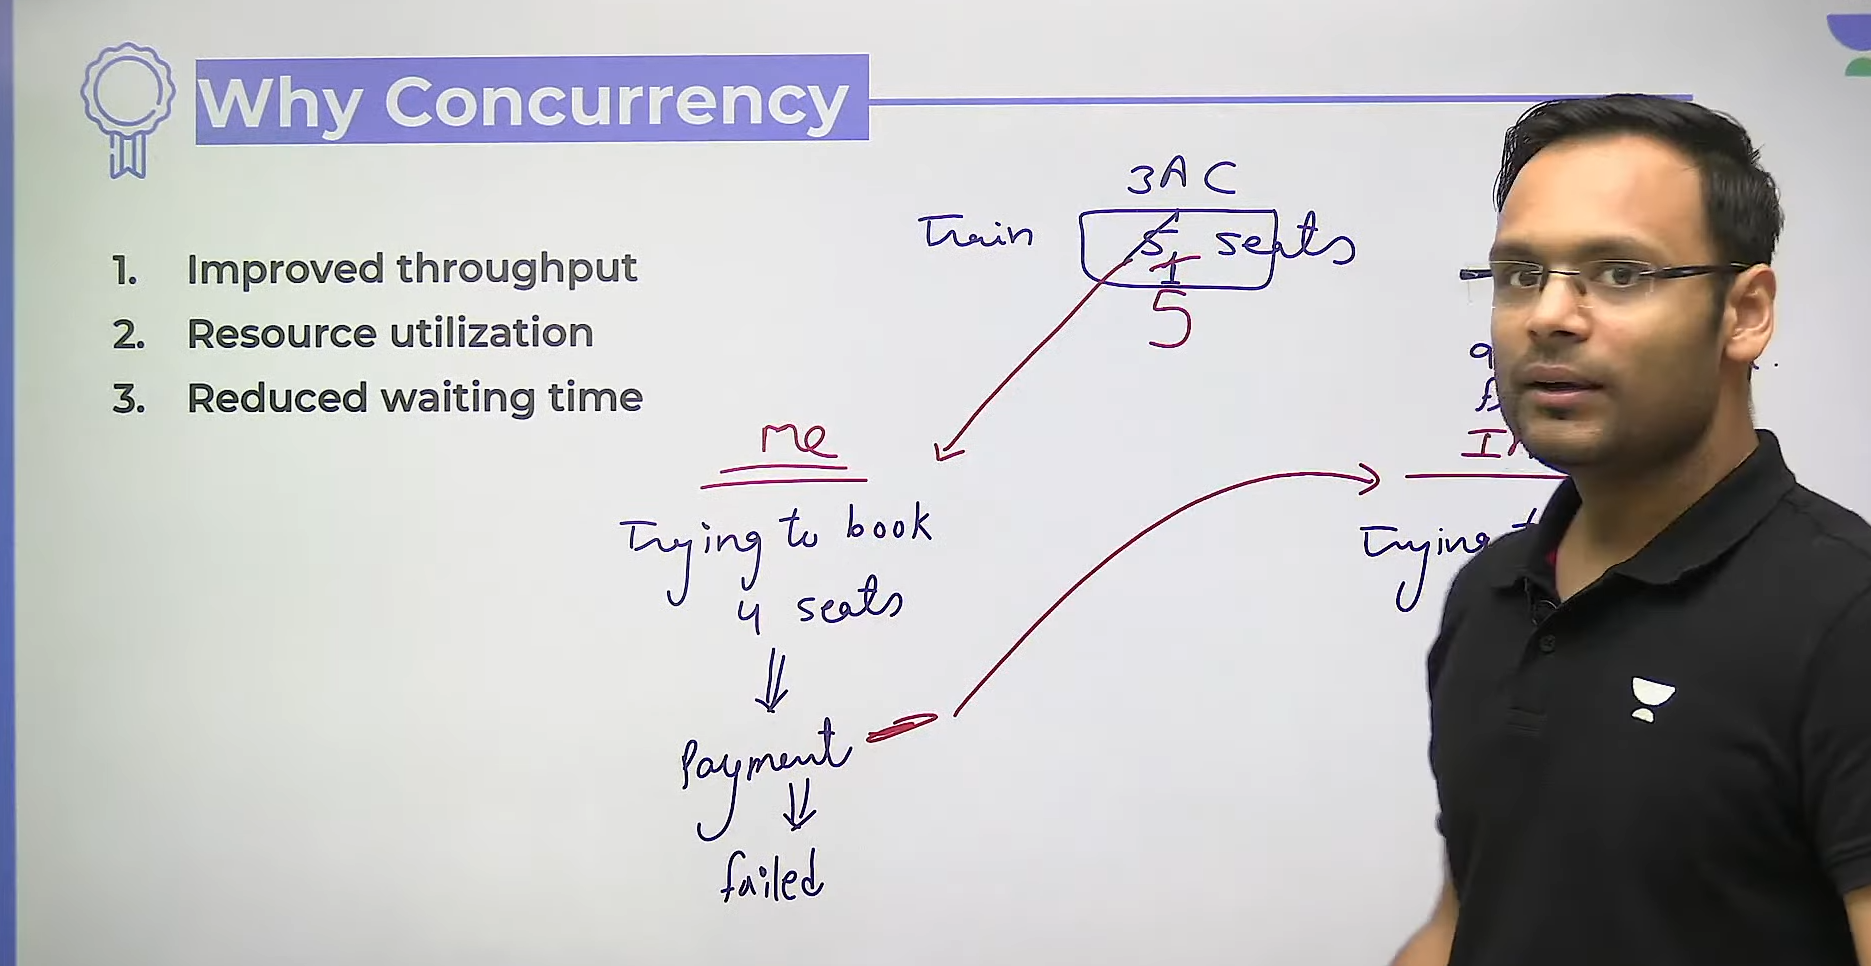 Why Concurrency
1. Improved throughput
2. Resource utilization
3. Reduced waiting time
3AC
Train
5 seats
1
5
me
Trying to book
4 seats
Payment
failed
Trying